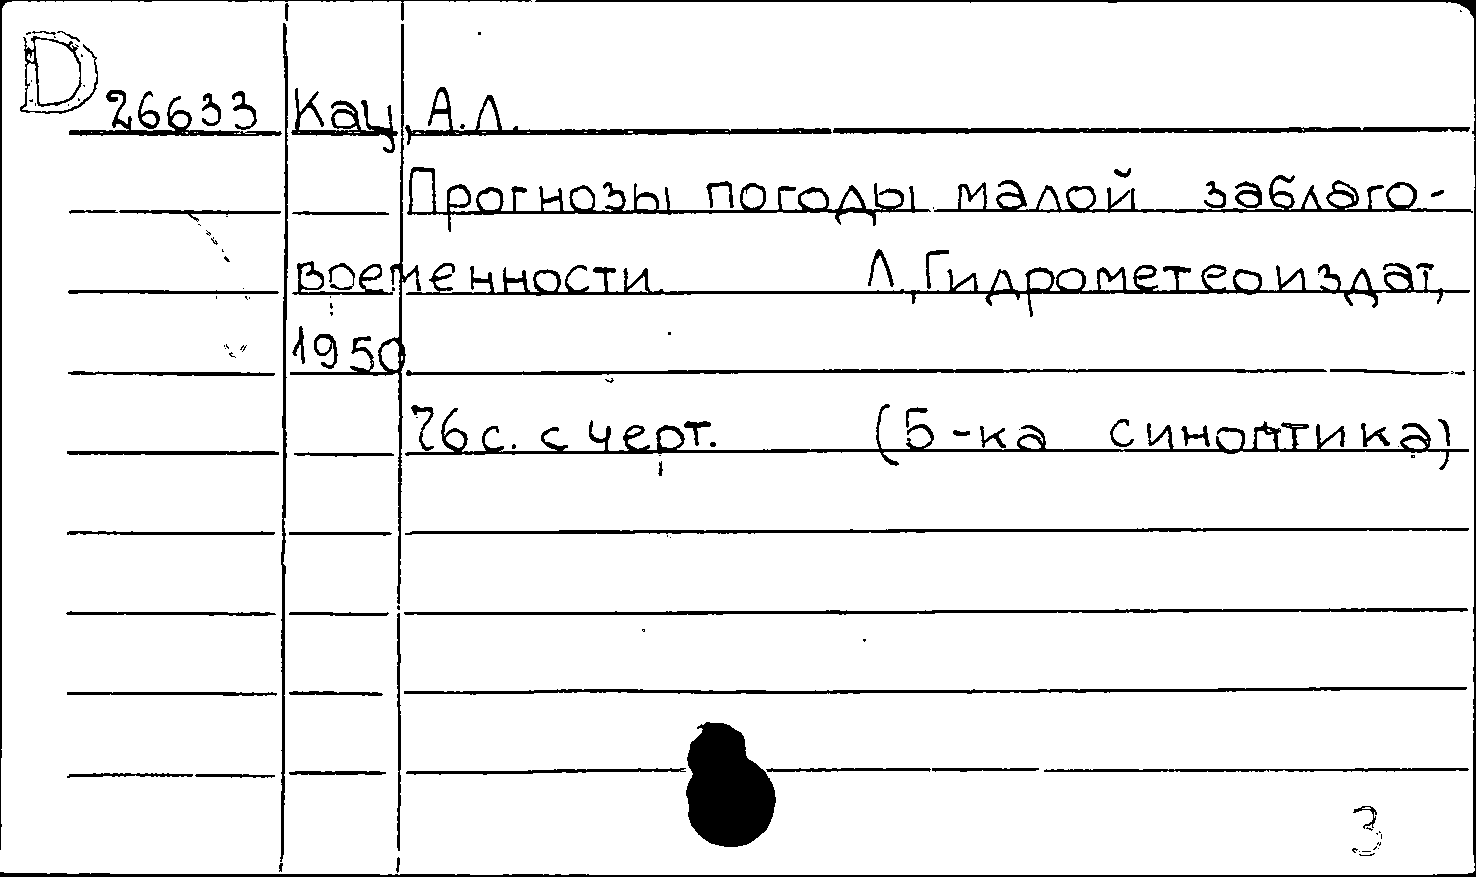 D 26633 Кац, А.Л.
Прогнозы погоды малой заблаго-
временности. Л., Гидрометеоиздат,
1950.
76 с. с черт. (Б-ка синоптика)
3